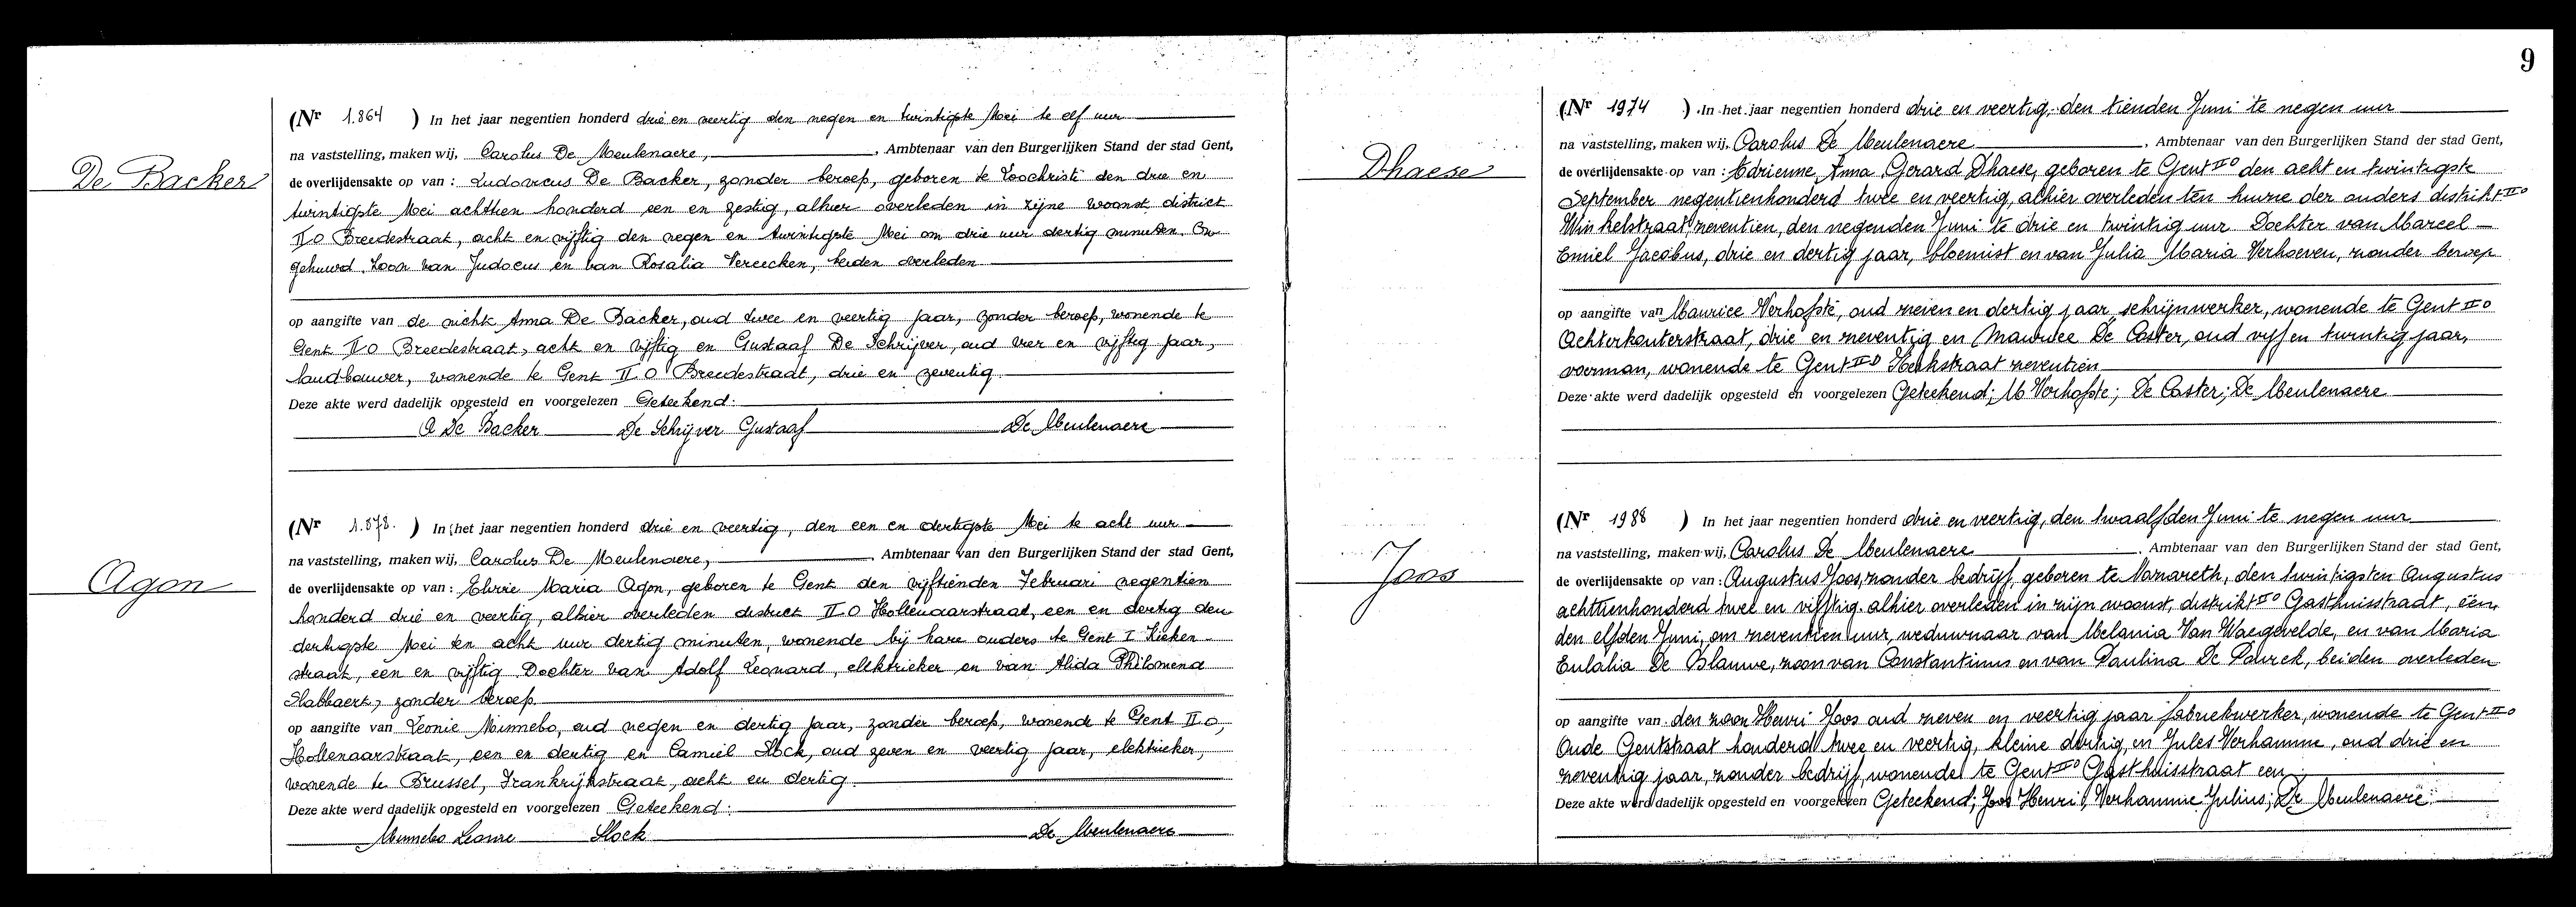 De Backer
(Nr 1.864 ) In het jaar negentien honderd drie en veertig den negen en twintigste Mei te elf uur
na vaststelling, maken wij, Carolus De Meulenaere, , Ambtenaar van den Burgerlijken Stand der stad Gent,
de overlijdensakte op van : Ludovicus De Backer, zonder beroep, geboren te Loochristi den drie en
twintigste Mei achttien honderd een en zestig, alhier overleden in zijne woonst, district
II O Breedestraat, acht en vijftig den negen en twintigste Mei om drie uur dertig minuten. On
gehuwd. Zoon van Judocus en van Rosalia Vereecken, beiden overleden
op aangifte van de nicht Anna De Backer, oud twee en veertig jaar, zonder beroep, wonende te
Gent II O Breedestraat, acht en vijftig en Gustaaf De Schrijver, oud vier en vijftig jaar,
landbouwer, wonende te Gent II O Breedestraat, drie en zeventig.
Deze akte werd dadelijk opgesteld en voorgelezen Geteekend:
A De Backer De Schrijver Gustaaf De Meulenaere
Agon
(Nr 1.878. ) In het jaar negentien honderd drie en veertig, den een en dertigste Mei te acht uur
na vaststelling, maken wij, Carolus De Meulenaere, , Ambtenaar van den Burgerlijken Stand der stad Gent,
de overlijdensakte op van : Elvrie Maria Agon, geboren te Gent den vijftienden Februari negentien
honderd drie en veertig, alhier overleden district II O Hollenaarstraat, een en dertig den
dertigste Mei ten acht uur dertig minuten, wonende bij hare ouders te Gent I Kieken-
straat, een en vijftig Dochter van Adolf Leonard, elektrieker en van Alida Philomena
Slabbaert, zonder beroep.
op aangifte van Leonie Minnebo, oud negen en dertig jaar, zonder beroep, wonende te Gent II O,
Hollenaarstraat, een en dertig en Camiel Slock, oud zeven en veertig jaar, elektrieker,
wonende te Brussel, Frankrijkstraat, acht en dertig.
Deze akte werd dadelijk opgesteld en voorgelezen Geteekend:
Minnebo Leonie Slock De Meulenaere
9
Dhaese
(Nr 1974 ) In het jaar negentien honderd drie en veertig, den tienden Juni te negen uur
na vaststelling, maken wij, Carolus De Meulenaere , Ambtenaar van den Burgerlijken Stand der stad Gent,
de overlijdensakte op van : Adrienne Anna Gerard Dhaese, geboren te Gent II O den acht en twintigste
September negentienhonderd twee en veertig, alhier overleden ten huize der ouders distrikt II O
Winkelstraat zeventien, den negenden Juni te drie en twintig uur. Dochter van Marcel
Emiel Jacobus, drie en dertig jaar, bloemist en van Julia Maria Verhoeven, zonder beroep
op aangifte van Maurice Verhofste, oud zeven en dertig jaar, schrijnwerker, wonende te Gent II O
Achterkouterstraat, drie en zeventig en Maurice De Coster, oud vijf en twintig jaar,
voerman, wonende te Gent II O Hekstraat zeventien
Deze akte werd dadelijk opgesteld en voorgelezen Geteekend; M Verhofste; De Coster; De Meulenaere
Joos
(Nr 1988 ) In het jaar negentien honderd drie en veertig, den twaalfden Juni te negen uur
na vaststelling, maken wij, Carolus De Meulenaere , Ambtenaar van den Burgerlijken Stand der stad Gent,
de overlijdensakte op van : Augustus Joos, zonder bedrijf, geboren te Nazareth, den twintigsten Augustus
achttienhonderd twee en vijftig. alhier overleden in zijn woonst, distrikt II O Gasthuisstraat, een,
den elfden Juni, om zeventien uur, weduwnaar van Melania Van Waegevelde, en van Maria
Eulalia De Blauwe, zoon van Constantinus en van Paulina De Paurck, beiden overleden
op aangifte van den zoon Henri Joos oud zeven en veertig jaar fabriekwerker, wonende te Gent II O
Oude Gentstraat honderd twee en veertig, kleine dertig, en Jules Verhamme, oud drie en
zeventig jaar, zonder bedrijf, wonende te Gent II O Gasthuisstraat een
Deze akte werd dadelijk opgesteld en voorgelezen Geteekend; Joos Henri; Verhamme Julius; De Meulenaere